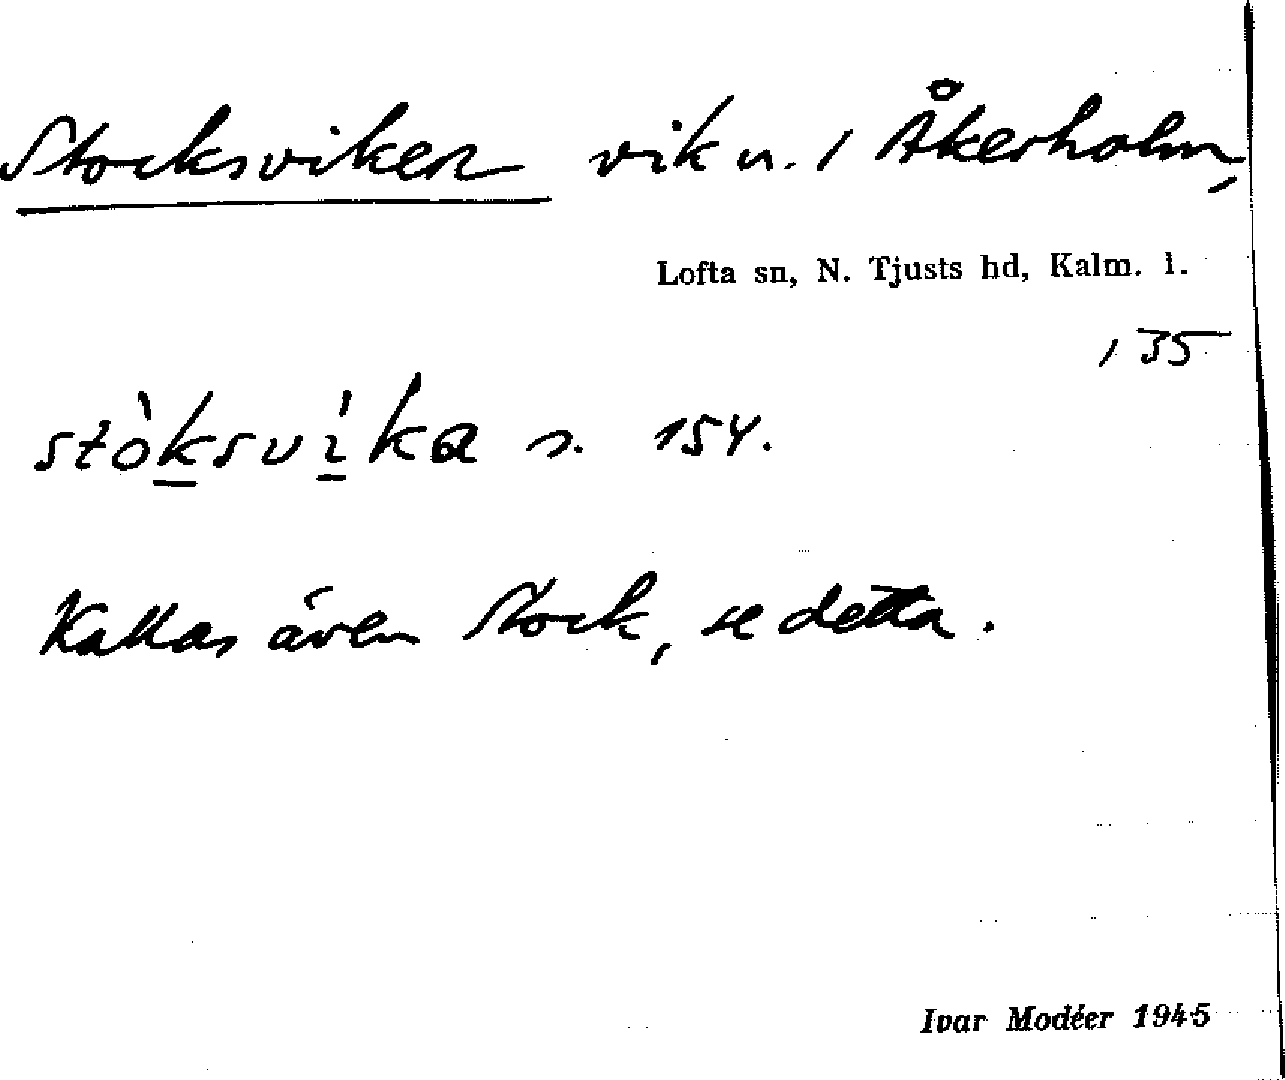 Stocksviken vik n. / Åkerholm,
Lofta sn, N. Tjusts hd, Kalm. l.
, 35
stòksvíka s. 154.
Kallas även Stock, se detta.
Ivar Modéer 1945